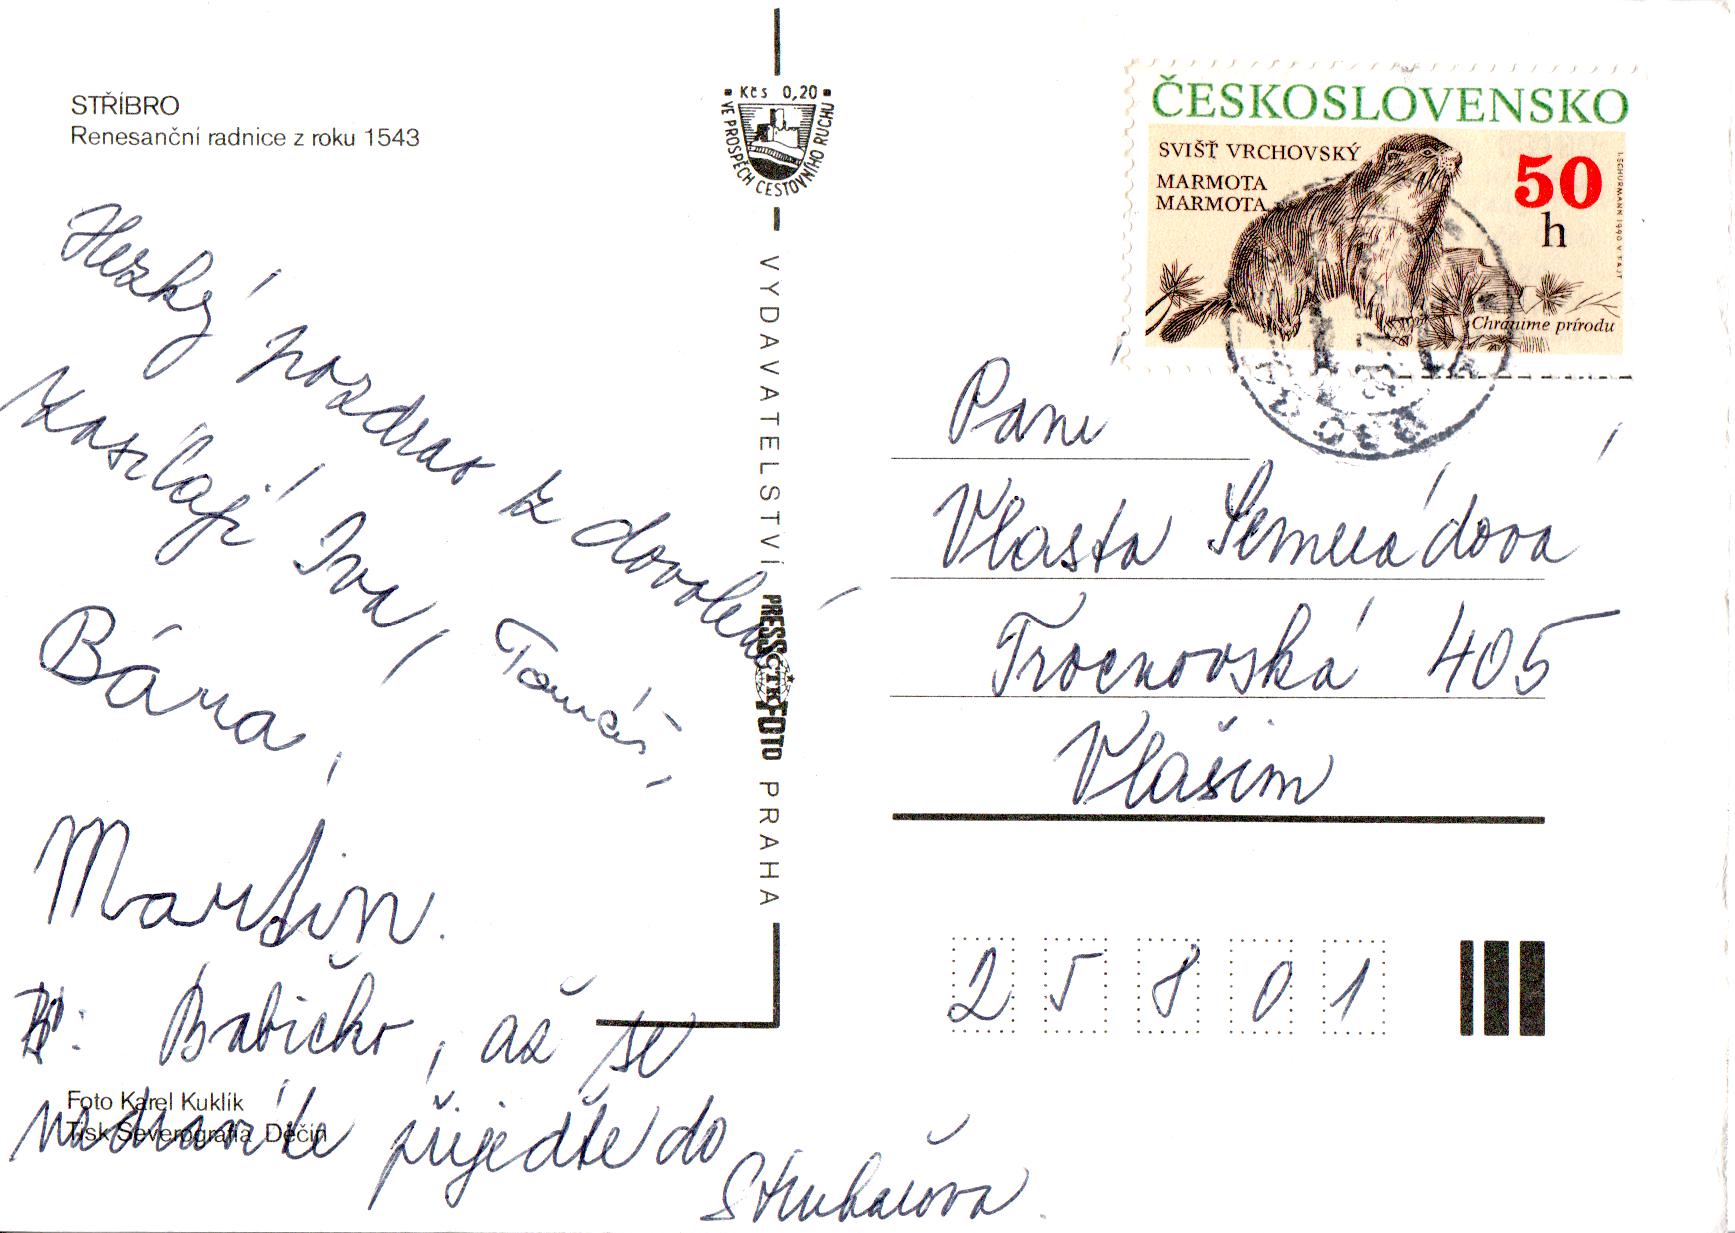 STŘÍBRO
Renesanční radnice z roku 1543
Hezký pozdrav z dovolené
zasílají Iva, Tomáš,
Bára,
Martin.
Babičko, až se
uzdravíte přijeďte do
Foto Karel Kuklík
Tisk Severografia Děčín
Kčs 0,20
VE PROSPĚCH CESTOVNÍHO RUCHU
VYDAVATELSTVÍ PRESSFOTO PRAHA
ČTK
ČESKOSLOVENSKO
SVIŠŤ VRCHOVSKÝ
MARMOTA
MARMOTA
50
h
I.SCHURMANN 1990 V.FAJT
Chráníme prírodu
Paní
Vlasta
Trocnovská 405
Vlašim
25801